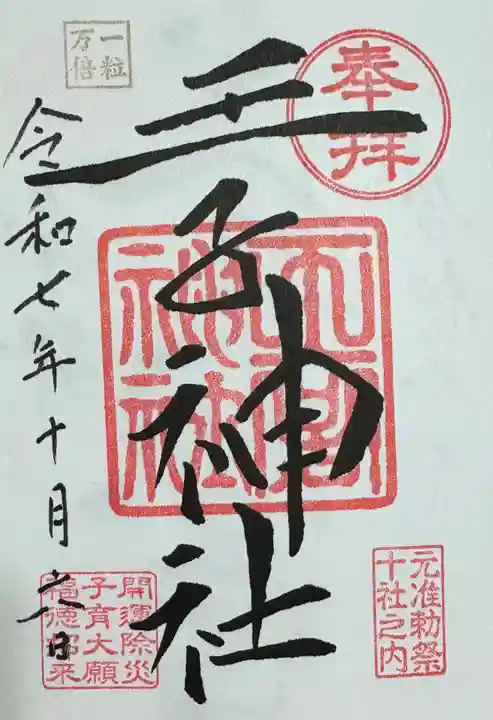 奉拝
王子神社
王子神社
元准勅祭
十社之内
一粒
万倍
令和七年十月六日
開運除災
子育大願
福徳来